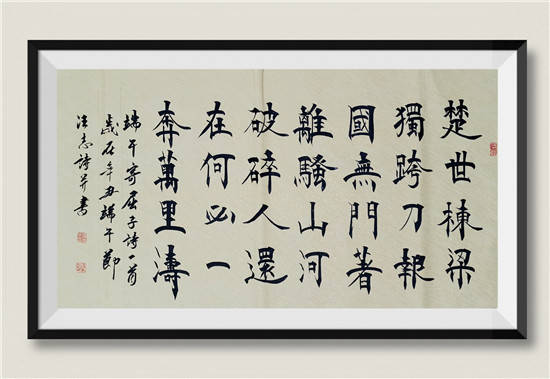 楚世棟梁
獨跨刀報
國無門著
離騷山河
破碎人還
在何必一
奔萬里濤
端午寄屈子詩一首
歲在辛丑端午節
汪志詩并書